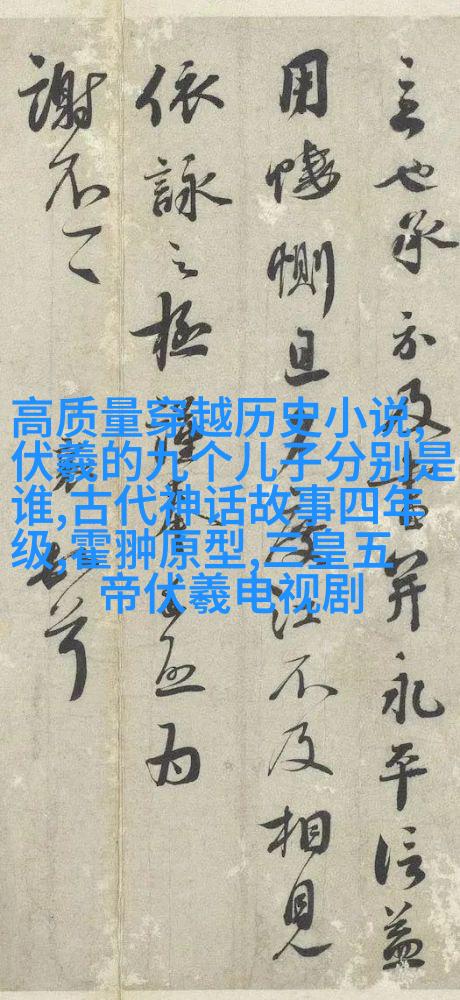 高质量穿越历史小说,
伏羲的九个儿子分别是
谁,古代神话故事四年
级,霍翀原型,三皇五
帝伏羲电视剧
也承示及書并永平信益
用悽惻且江不及相見
依詠之極為
謝不一